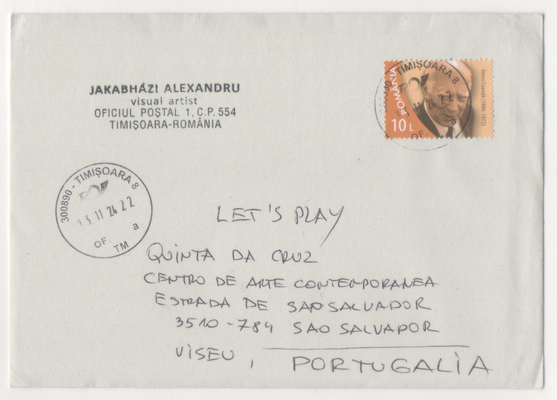 JAKABHÁZI ALEXANDRU
visual artist
OFICIUL POȘTAL 1, C.P. 554
TIMIȘOARA-ROMÂNIA
TIMIȘOARA 8
ROMÂNIA
10 L
300890 - TIMIȘOARA 8
11 24 22
OF. TM a
LET'S PLAY
QUINTA DA CRUZ
CENTRO DE ARTE CONTEMPORANEA
ESTRADA DE SAO SALVADOR
3510-784 SAO SALVADOR
VISEU, PORTUGALIA